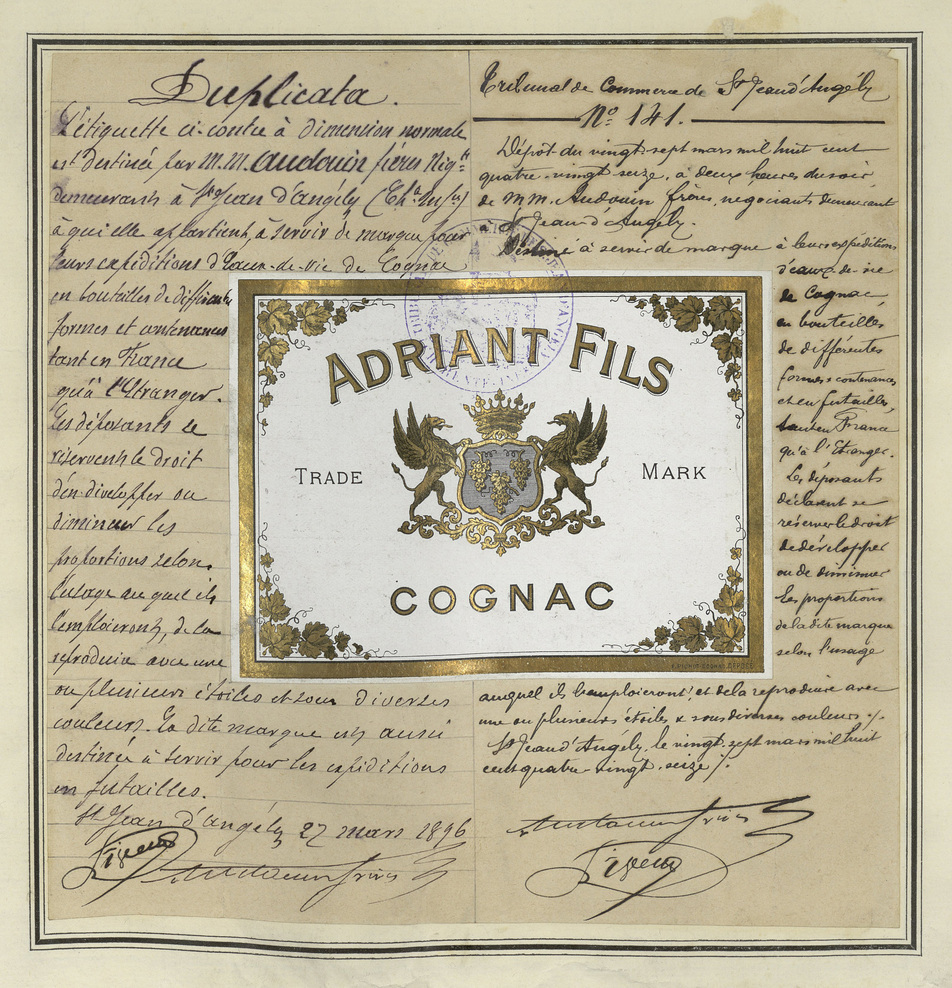 Duplicata.
L'étiquette ci-contre à dimension normale
est destinée par M.M. Audouin frères Nég.ts
demeurants à St Jean d'angély (Ch.te Inf.re)
à qui elle appartient, à servir de marque pour
leurs expéditions d'Eaux-de-vie de Cognac
en bouteilles de différentes
formes et contenances
tant en France
qu'à l'Etranger.
Les déposants se
réservent le droit
d'en développer ou
diminuer les
proportions selon
l'usage au quel ils
l'emploieront, de la
reproduire avec une
ou plusieurs étoiles et sous diverses
couleurs. La dite marque est aussi
destinée à servir pour les expéditions
en futailles.
St Jean d'angély 27 mars 1896
Audouin frères
Tribunal de Commerce de St Jean d'Angély
No 141.
Dépôt du vingt-sept mars mil huit cent
quatre-vingt seize, à deux heures du soir,
de MM. Audouin frères, négociants demeurant
à St Jean d'Angély.
Destiné à servir de marque à leurs expéditions
d'eaux-de-vie
de Cognac,
en bouteilles
de différentes
formes & contenances
et en futailles,
tant en France
qu'à l'Etranger.
Les déposants
déclarent se
réserver le droit
de développer
ou de diminuer
les proportions
de la dite marque
selon l'usage
auquel ils l'emploieront, et de la reproduire avec
une ou plusieurs étoiles & sous diverses couleurs ./.
St Jean d'Angély, le vingt-sept mars mil huit
cent quatre-vingt-seize ./.
Audouin frères
ADRIANT FILS
TRADE MARK
COGNAC